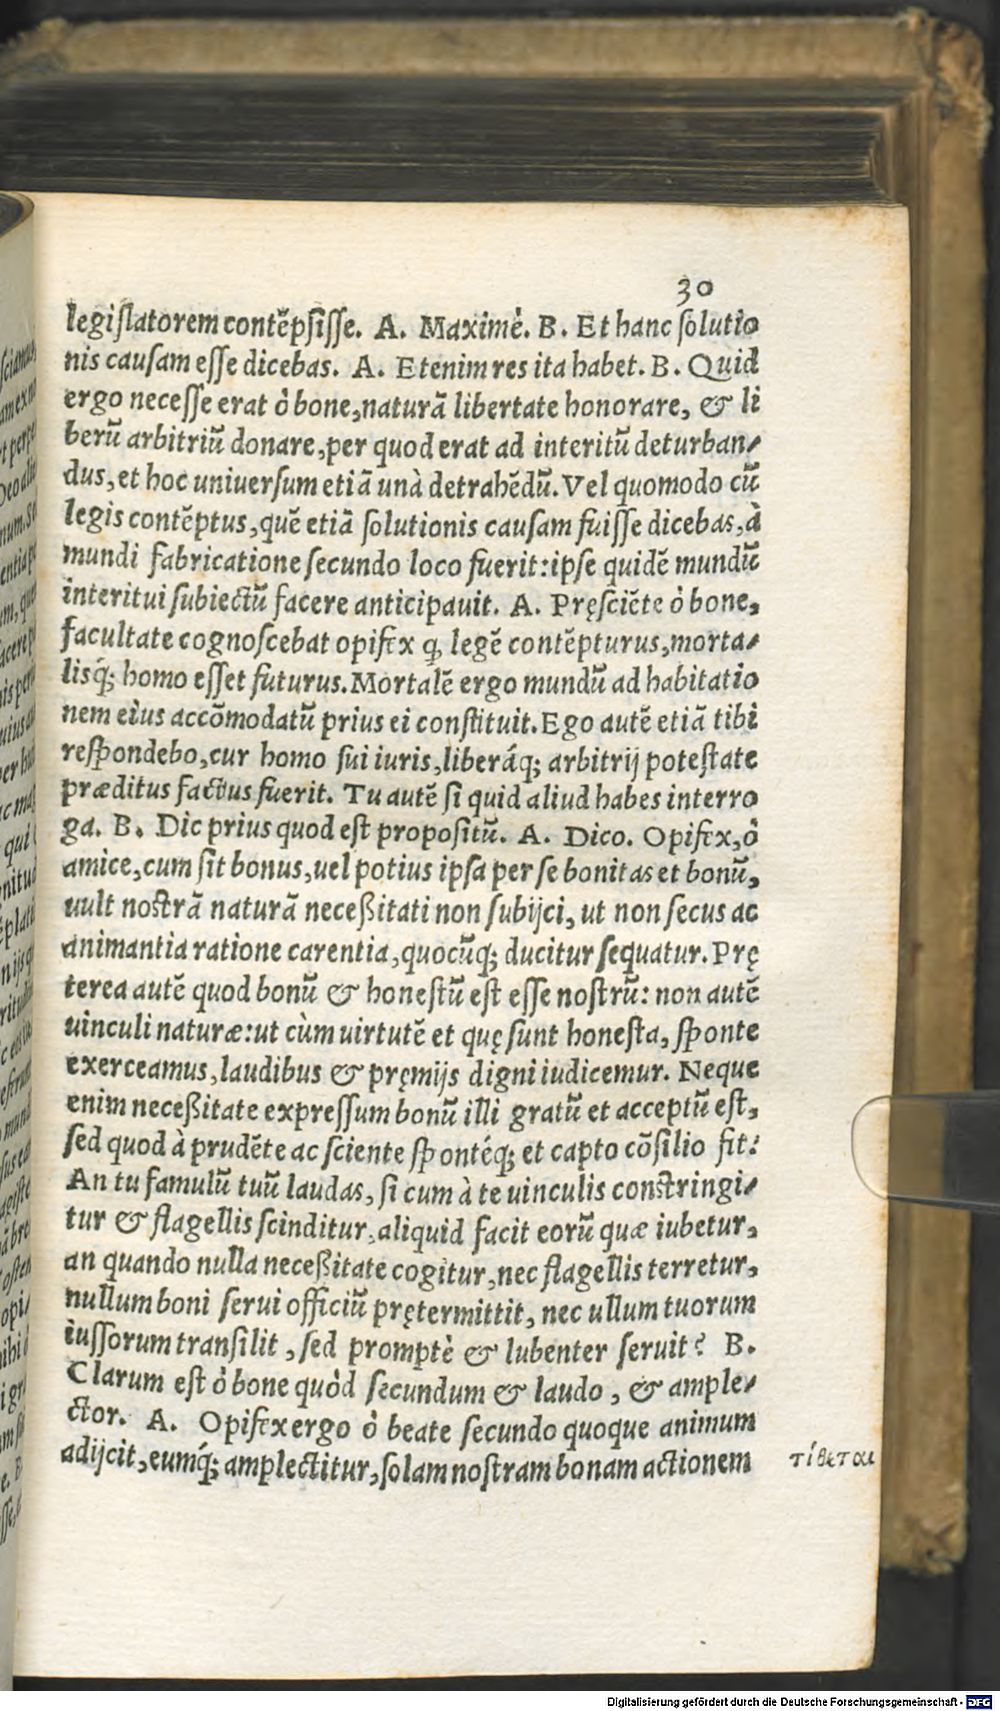 30
legislatorem contẽpsisse. A. Maximè. B. Et hanc solutio
nis causam esse dicebas. A. Etenim res ita habet. B. Quid
ergo necesse erat ò bone, naturã libertate honorare, & li
berũ arbitriũ donare, per quod erat ad interitũ deturban-
dus, et hoc uniuersum etiã unà detrahẽdũ. Vel quomodo cũ
legis contẽptus, quẽ etiã solutionis causam fuisse dicebas, à
mundi fabricatione secundo loco fuerit: ipse quidẽ mundũ
interitui subiectũ facere anticipauit. A. Pręsciẽte ò bone,
facultate cognoscebat opifex ꝙ legẽ contẽpturus, morta-
lisq́; homo esset futurus. Mortalẽ ergo mundũ ad habitatio
nem eius accõmodatũ prius ei constituit. Ego autẽ etiã tibi
respondebo, cur homo sui iuris, liberáq; arbitrij potestate
præditus factus fuerit. Tu autẽ si quid aliud habes interro
ga. B. Dic prius quod est propositũ. A. Dico. Opifex, ò
amice, cum sit bonus, uel potius ipsa per se bonitas et bonũ,
uult nostrã naturã neceßitati non subijci, ut non secus ac
animantia ratione carentia, quocũq; ducitur sequatur. Prę
terea autẽ quod bonũ & honestũ est esse nostrũ: non autẽ
uinculi naturæ: ut cùm uirtutẽ et quę sunt honesta, sponte
exerceamus, laudibus & pręmijs digni iudicemur. Neque
enim neceßitate expressum bonũ illi gratũ et acceptũ est,
sed quod à prudẽte ac sciente spontéq; et capto cõsilio fit:
An tu famulũ tuũ laudas, si cum à te uinculis constringi-
tur & flagellis scinditur, aliquid facit eorũ quæ iubetur,
an quando nulla neceßitate cogitur, nec flagellis terretur,
nullum boni serui officiũ prętermittit, nec ullum tuorum
iussorum transilit, sed promptè & lubenter seruit? B.
Clarum est ò bone quòd secundum & laudo, & ample-
ctor. A. Opifex ergo ò beate secundo quoque animum
adijcit, eumq́; amplectitur, solam nostram bonam actionem
τίθεται
Digitalisierung gefördert durch die Deutsche Forschungsgemeinschaft - DFG